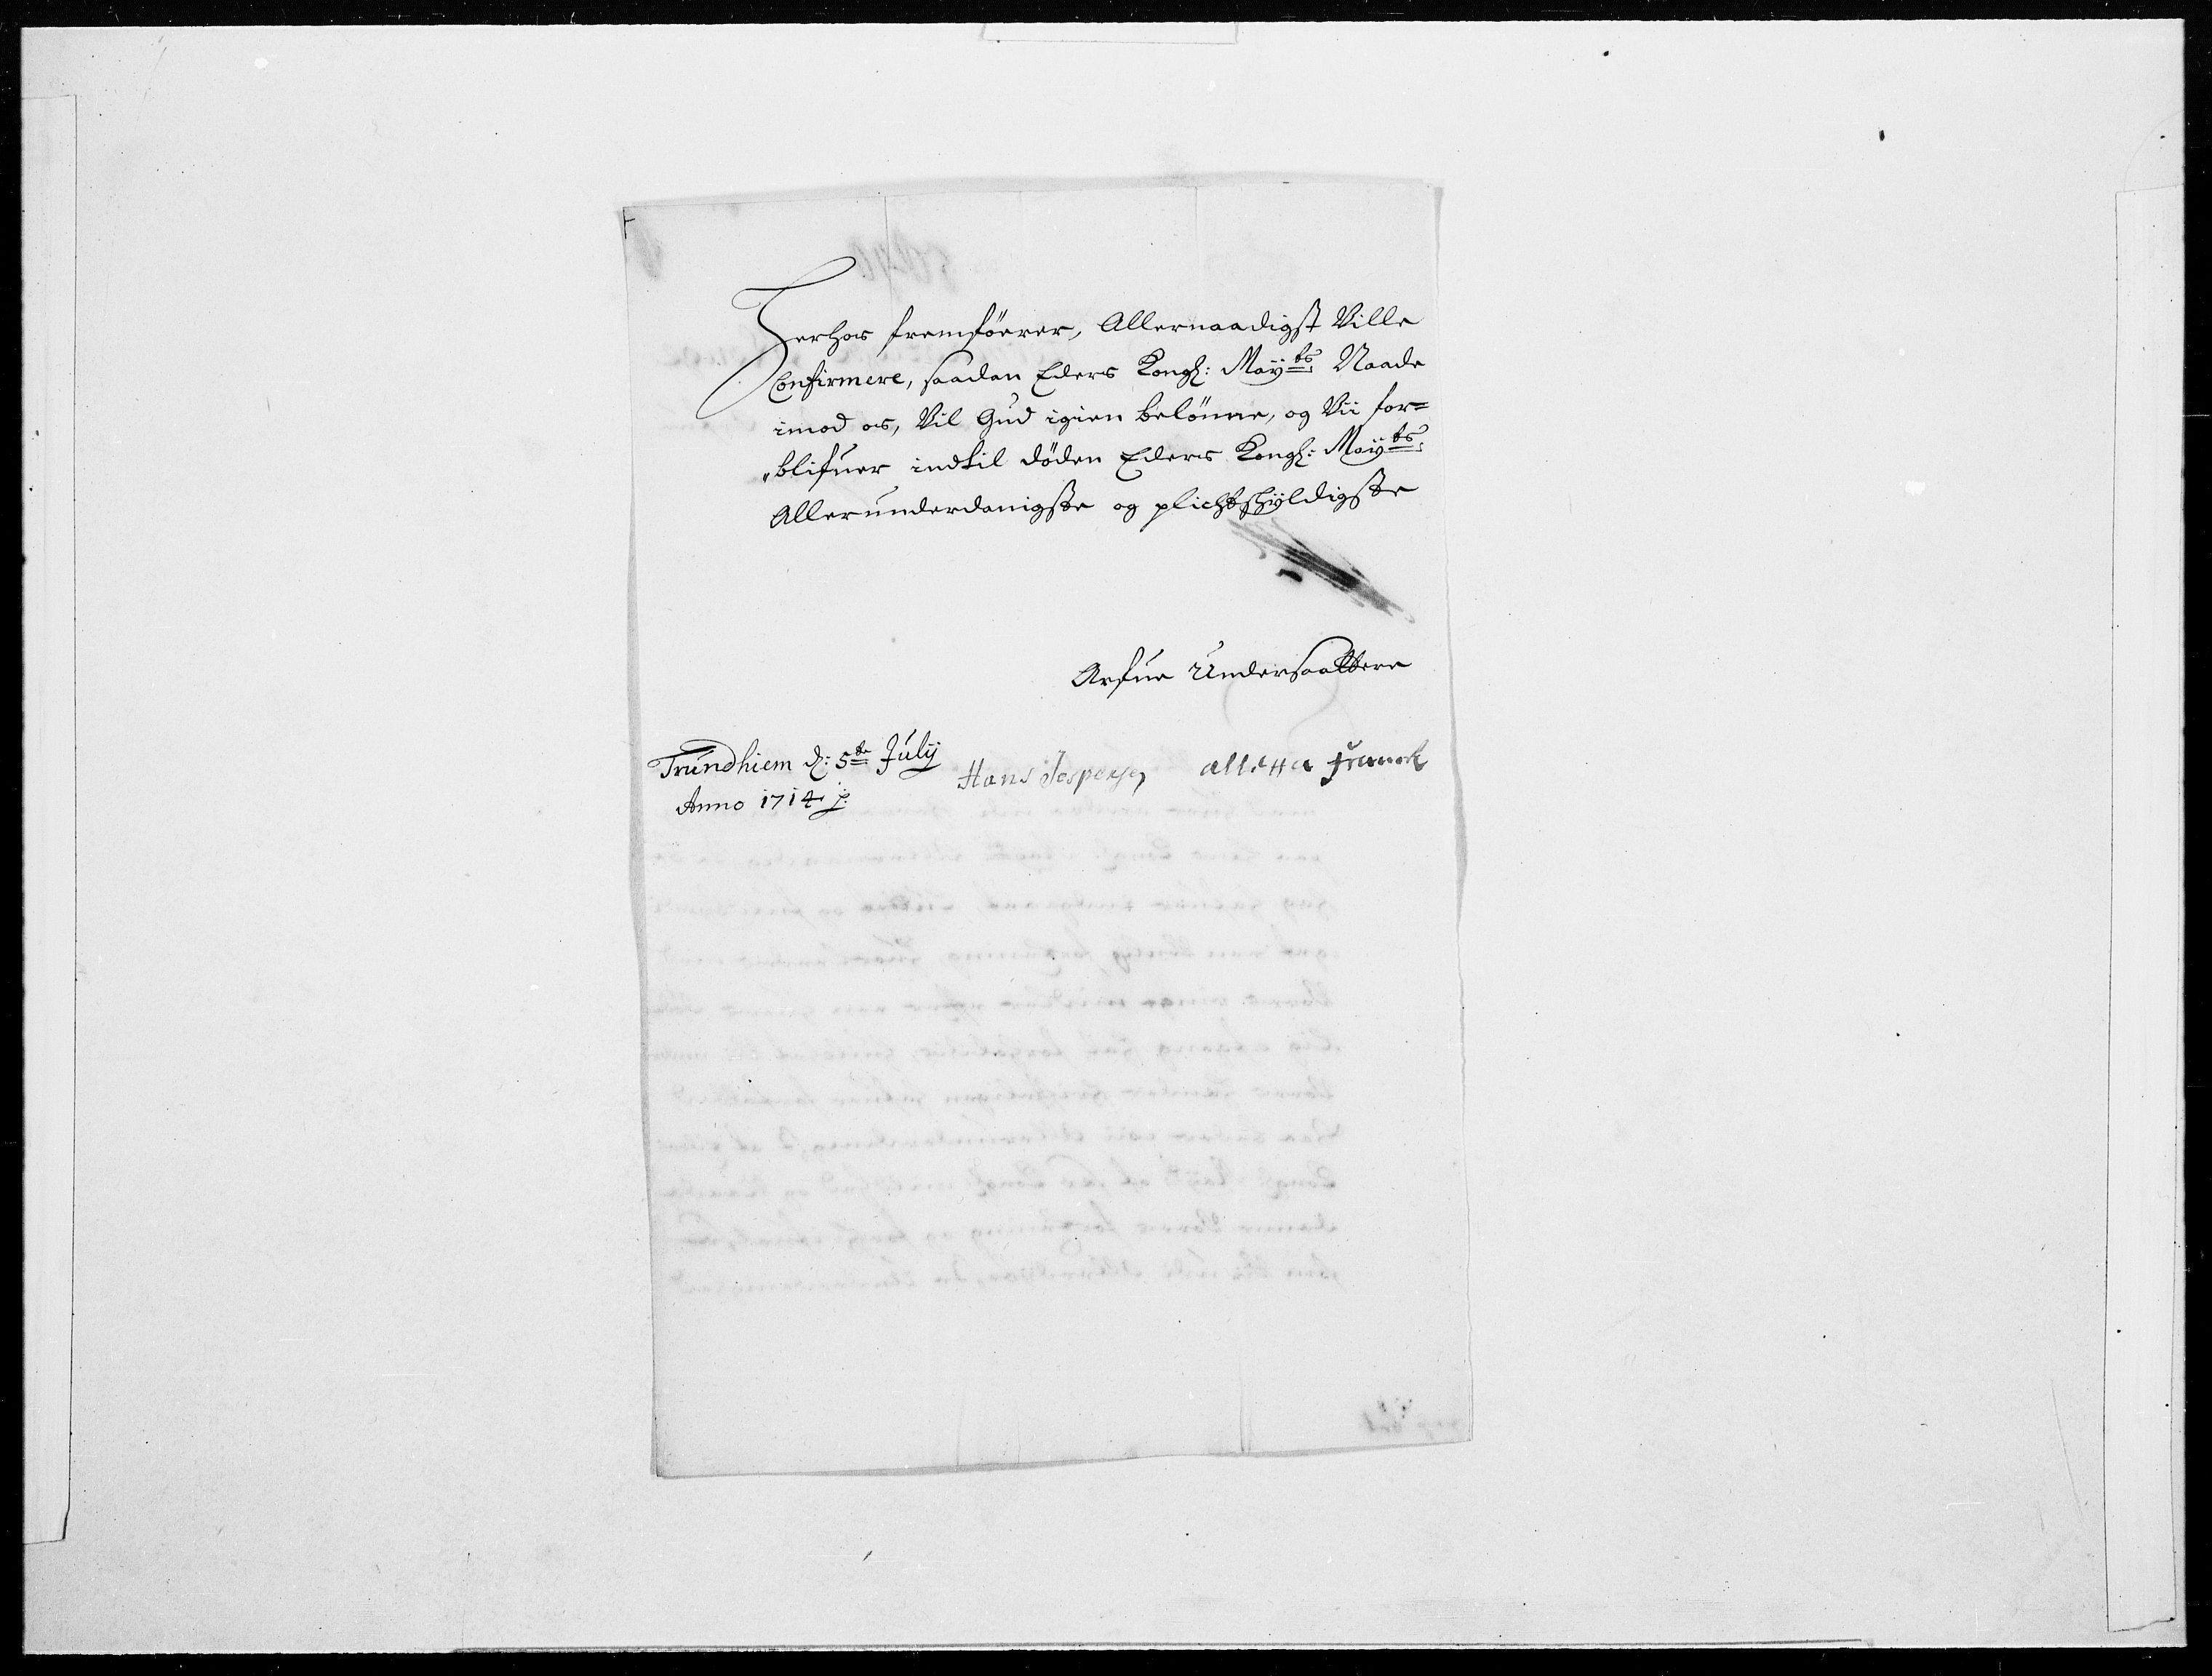 Herhos fremföerer, Allernaadigst Ville
Confirmere, saadan Eders Kongl: Maÿts: Naade
imod os, Vil Gud igien belönne, og Vii for=
„blifuer indtil döden Eders Kongl: Maÿts:
Allerunderdanigste og plichtskÿldigste
Arfue Undersaattere
Trundhiem d: 5te Julÿ
Anno 1714
Hans Jespersen
alletta Franck